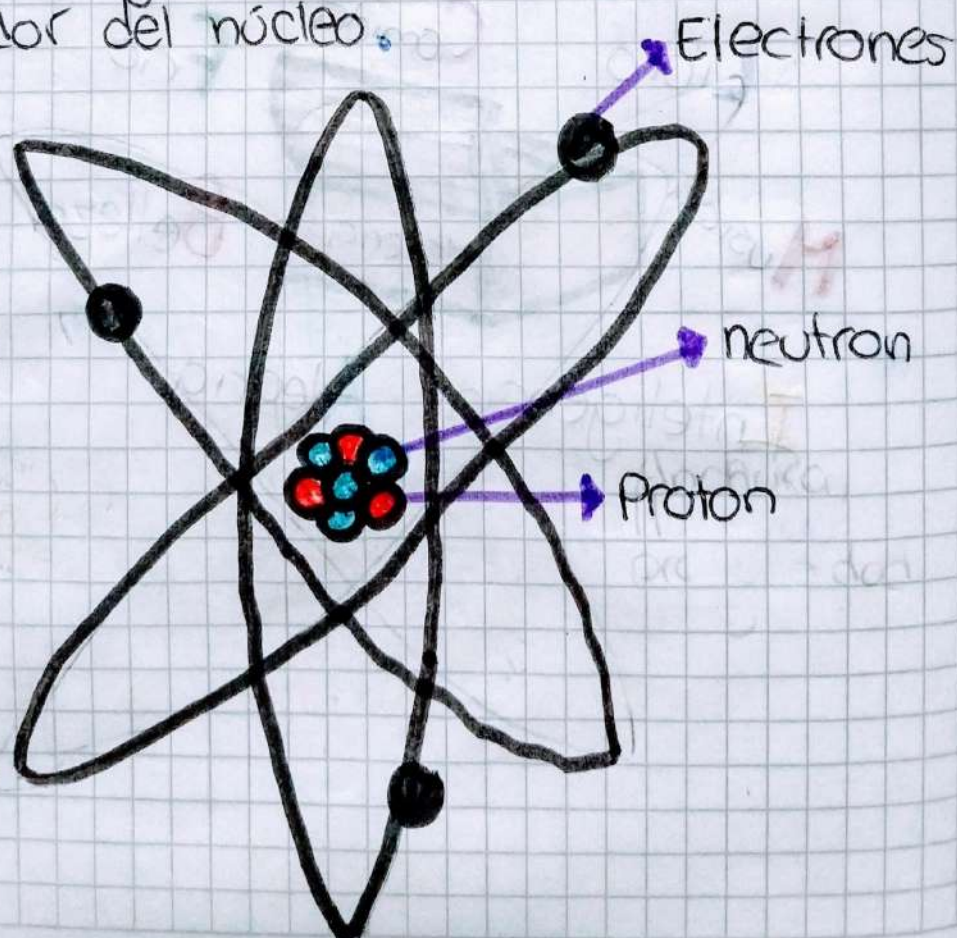 del núcleo.
Electrones
neutron
Proton